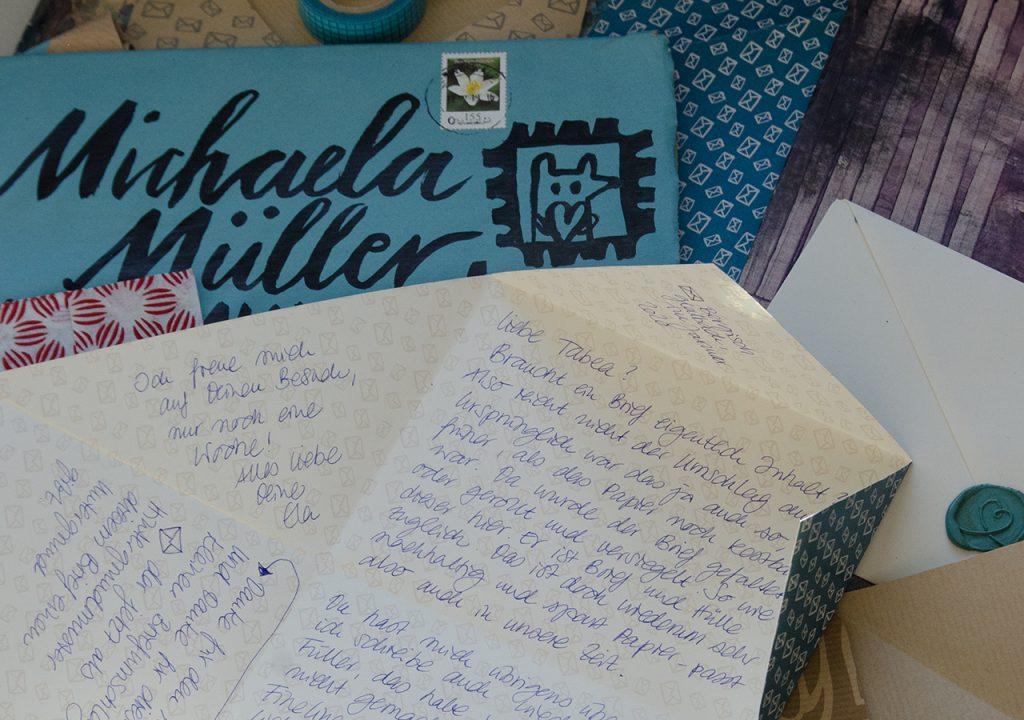 Michaela
Müller
155
Ich freue mich
auf Deinen Besuch,
nur noch eine
Woche!
Alles Liebe
Deine
2020
Liebe Tabea?
Braucht ein Brief eigentlich Inhalt?
Also reicht nicht der Umschlag aus
Ursprünglich war das ja auch so,
früher, als das Papier noch kostbar
war. Da wurde der Brief gefaltet
oder gerollt und versiegelt. So wie
dieser hier. Er ist Brief und Hülle
zugleich. Das ist doch wiederum sehr
nachhaltig und spart Papier - passt
also auch in unsere Zeit.
Du hast mich übrigens
ich schreibe auch
Füller, das habe
nicht
Und Danke für
kleinen
der jetzt als
Hintergrundmuster
diesen Brief
Untergrund